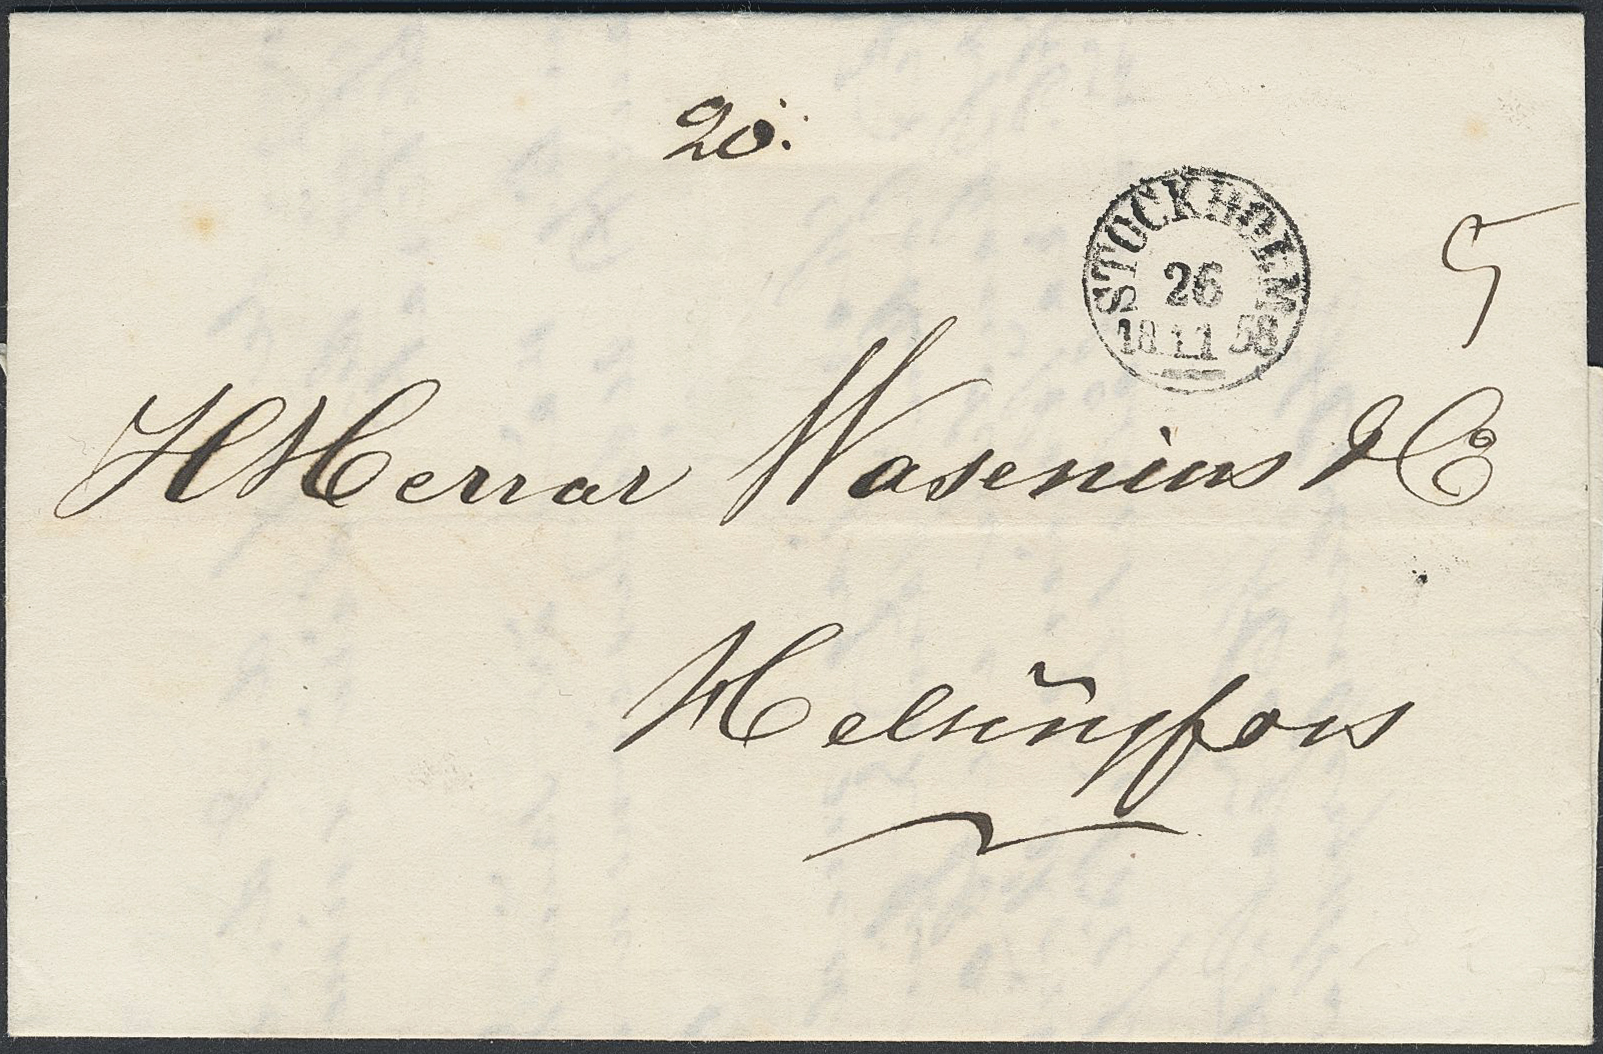 20.
STOCKHOLM
26
18 11 58
5
HHerrar Wasenius & Co
Helsingfors